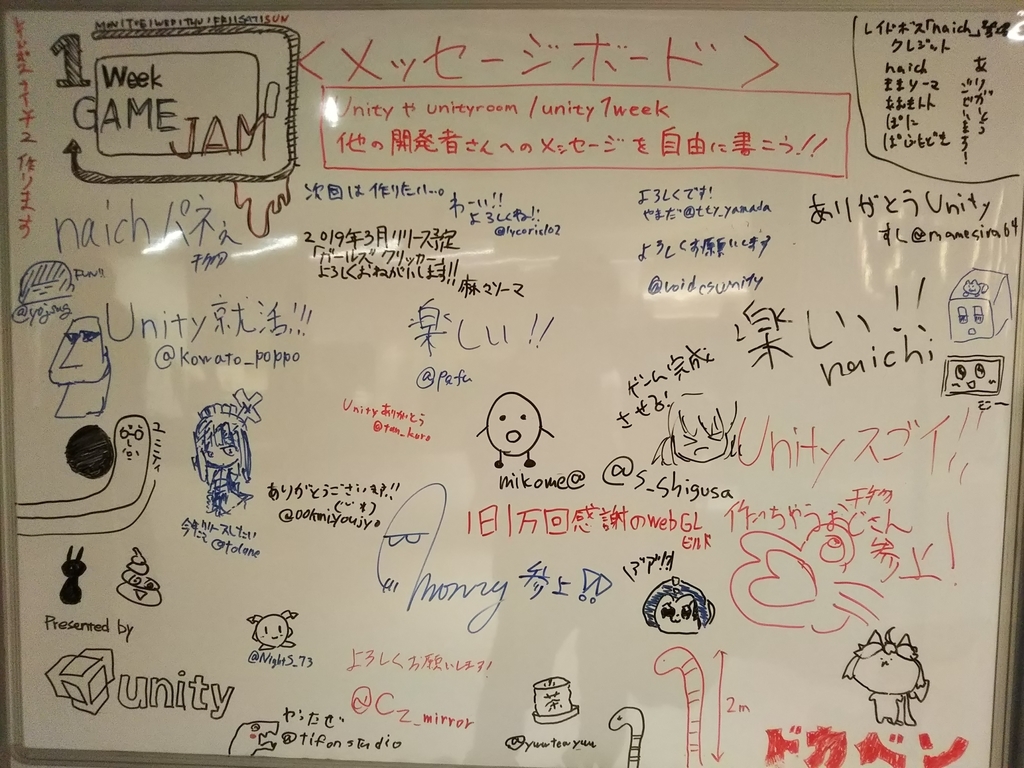 MON|TUE|WED|THU|FRI|SAT|SUN
1
Week
GAME
JAM
<メッセージボード>
Unityやunityroom/unity1week
他の開発者さんへのメッセージを自由に書こう!!
レイドボス「naich」
クレジット
naich
ありがとう
ございます!
作ります
naichパネぇ
次回は作りたい…。
わーい!!
よろしくね!!
@lycoris102
よろしくです!
やまだ@tty_yamada
ありがとうUnity
すし@mamesira64
2019年3月リリース予定
「ガールズクリッカー」
よろしくおねがいします!!
麻マリーマ
よろしくお願いします
@voidcsunity
FUN!!
Unity就活!!!
@komato_poppo
楽しい!!
楽しい!!
naichi
ゲーム完成
させる!
Unityありがとう
@tan_kuro
mikome@
@s_shigusa
Unityスゴイ!!
ユニティ
ありがとうございます!!
1日1万回感謝のwebGL
ビルド
作っちゃうおじさん
参上!
monry 参上!!
Presented by
unity
@NightS_73
よろしくお願いします!
@Cz_mirror
@tifonstudio
茶
@yuuteayuu
2m
ドカベン